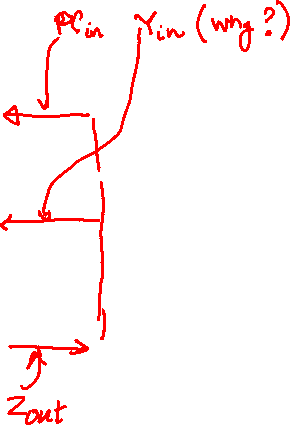 PCin Yin (why?)
Zout